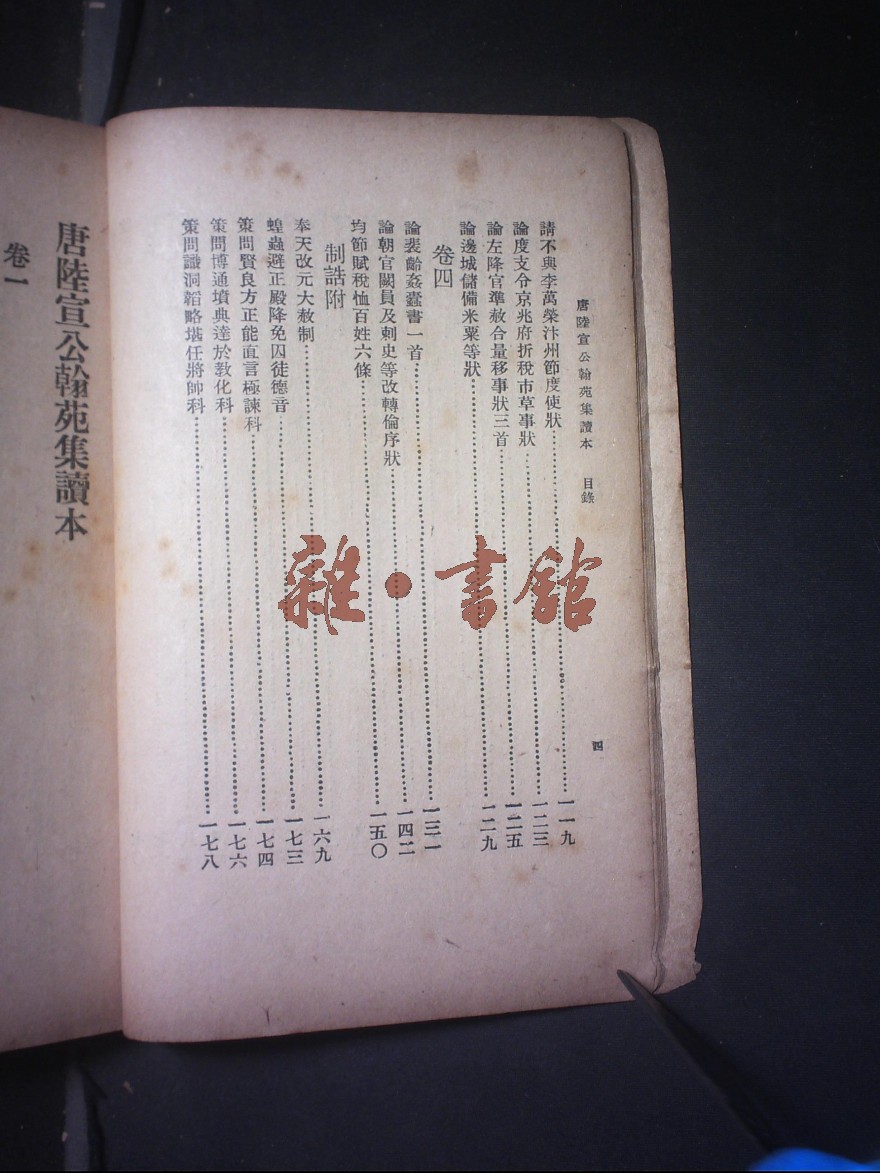 唐陸宣公翰苑集讀本 目錄 四
請不與李萬榮汴州節度使狀……一一九
論度支令京兆府折稅市草事狀……一二三
論左降官準赦合量移事狀三首……一二五
論邊城儲備米粟等狀……一二九
卷四
論裴齡姦蠹書一首……一三一
論朝官闕員及刺史等改轉倫序狀……一四二
均節賦稅恤百姓六條……一五〇
制誥附
奉天改元大赦制……一六九
蝗蟲避正殿降免囚徒德音……一七三
策問賢良方正能直言極諫科……一七四
策問博通墳典達於教化科……一七六
策問識洞韜略堪任將帥科……一七八
唐陸宣公翰苑集讀本
卷一
雜·書館